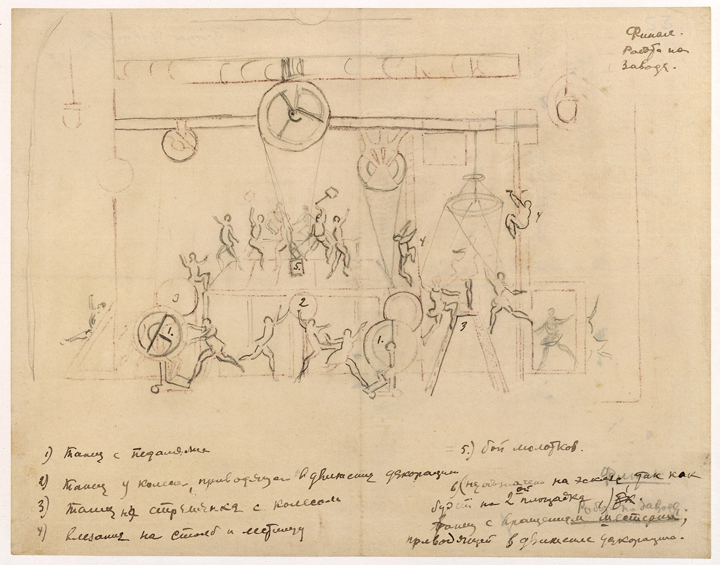 Финал.
Работа на
заводе.
4
4
5.
3
2
1.
1.
3
1) Танец с педалями
2) Танец у колеса, приводящего в движение декорации
3) Танец на стремянке с колесом
4) влезание на столб и лестницу
5.) бой молотков.
6) на эскизе, так как
будет на 2ой площадке
танец с вращением шестерни,
приводящей в движение декорацию.